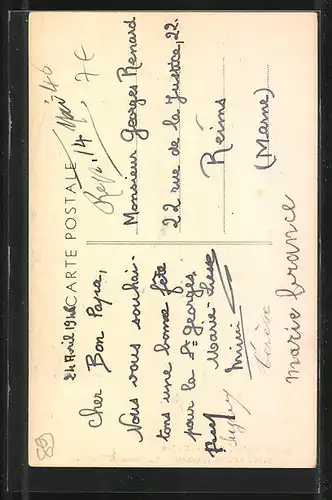 CARTE POSTALE
24 Avril 1946
Cher Bon Papa,
Nous vous souhai-
tons une bonne fête
pour la St Georges
Marie-Luce
Mimi
Térèse
marie france
14 Mai 46
Monsieur Georges Renard
22 rue de la Justice, 22.
Reims
(Marne)